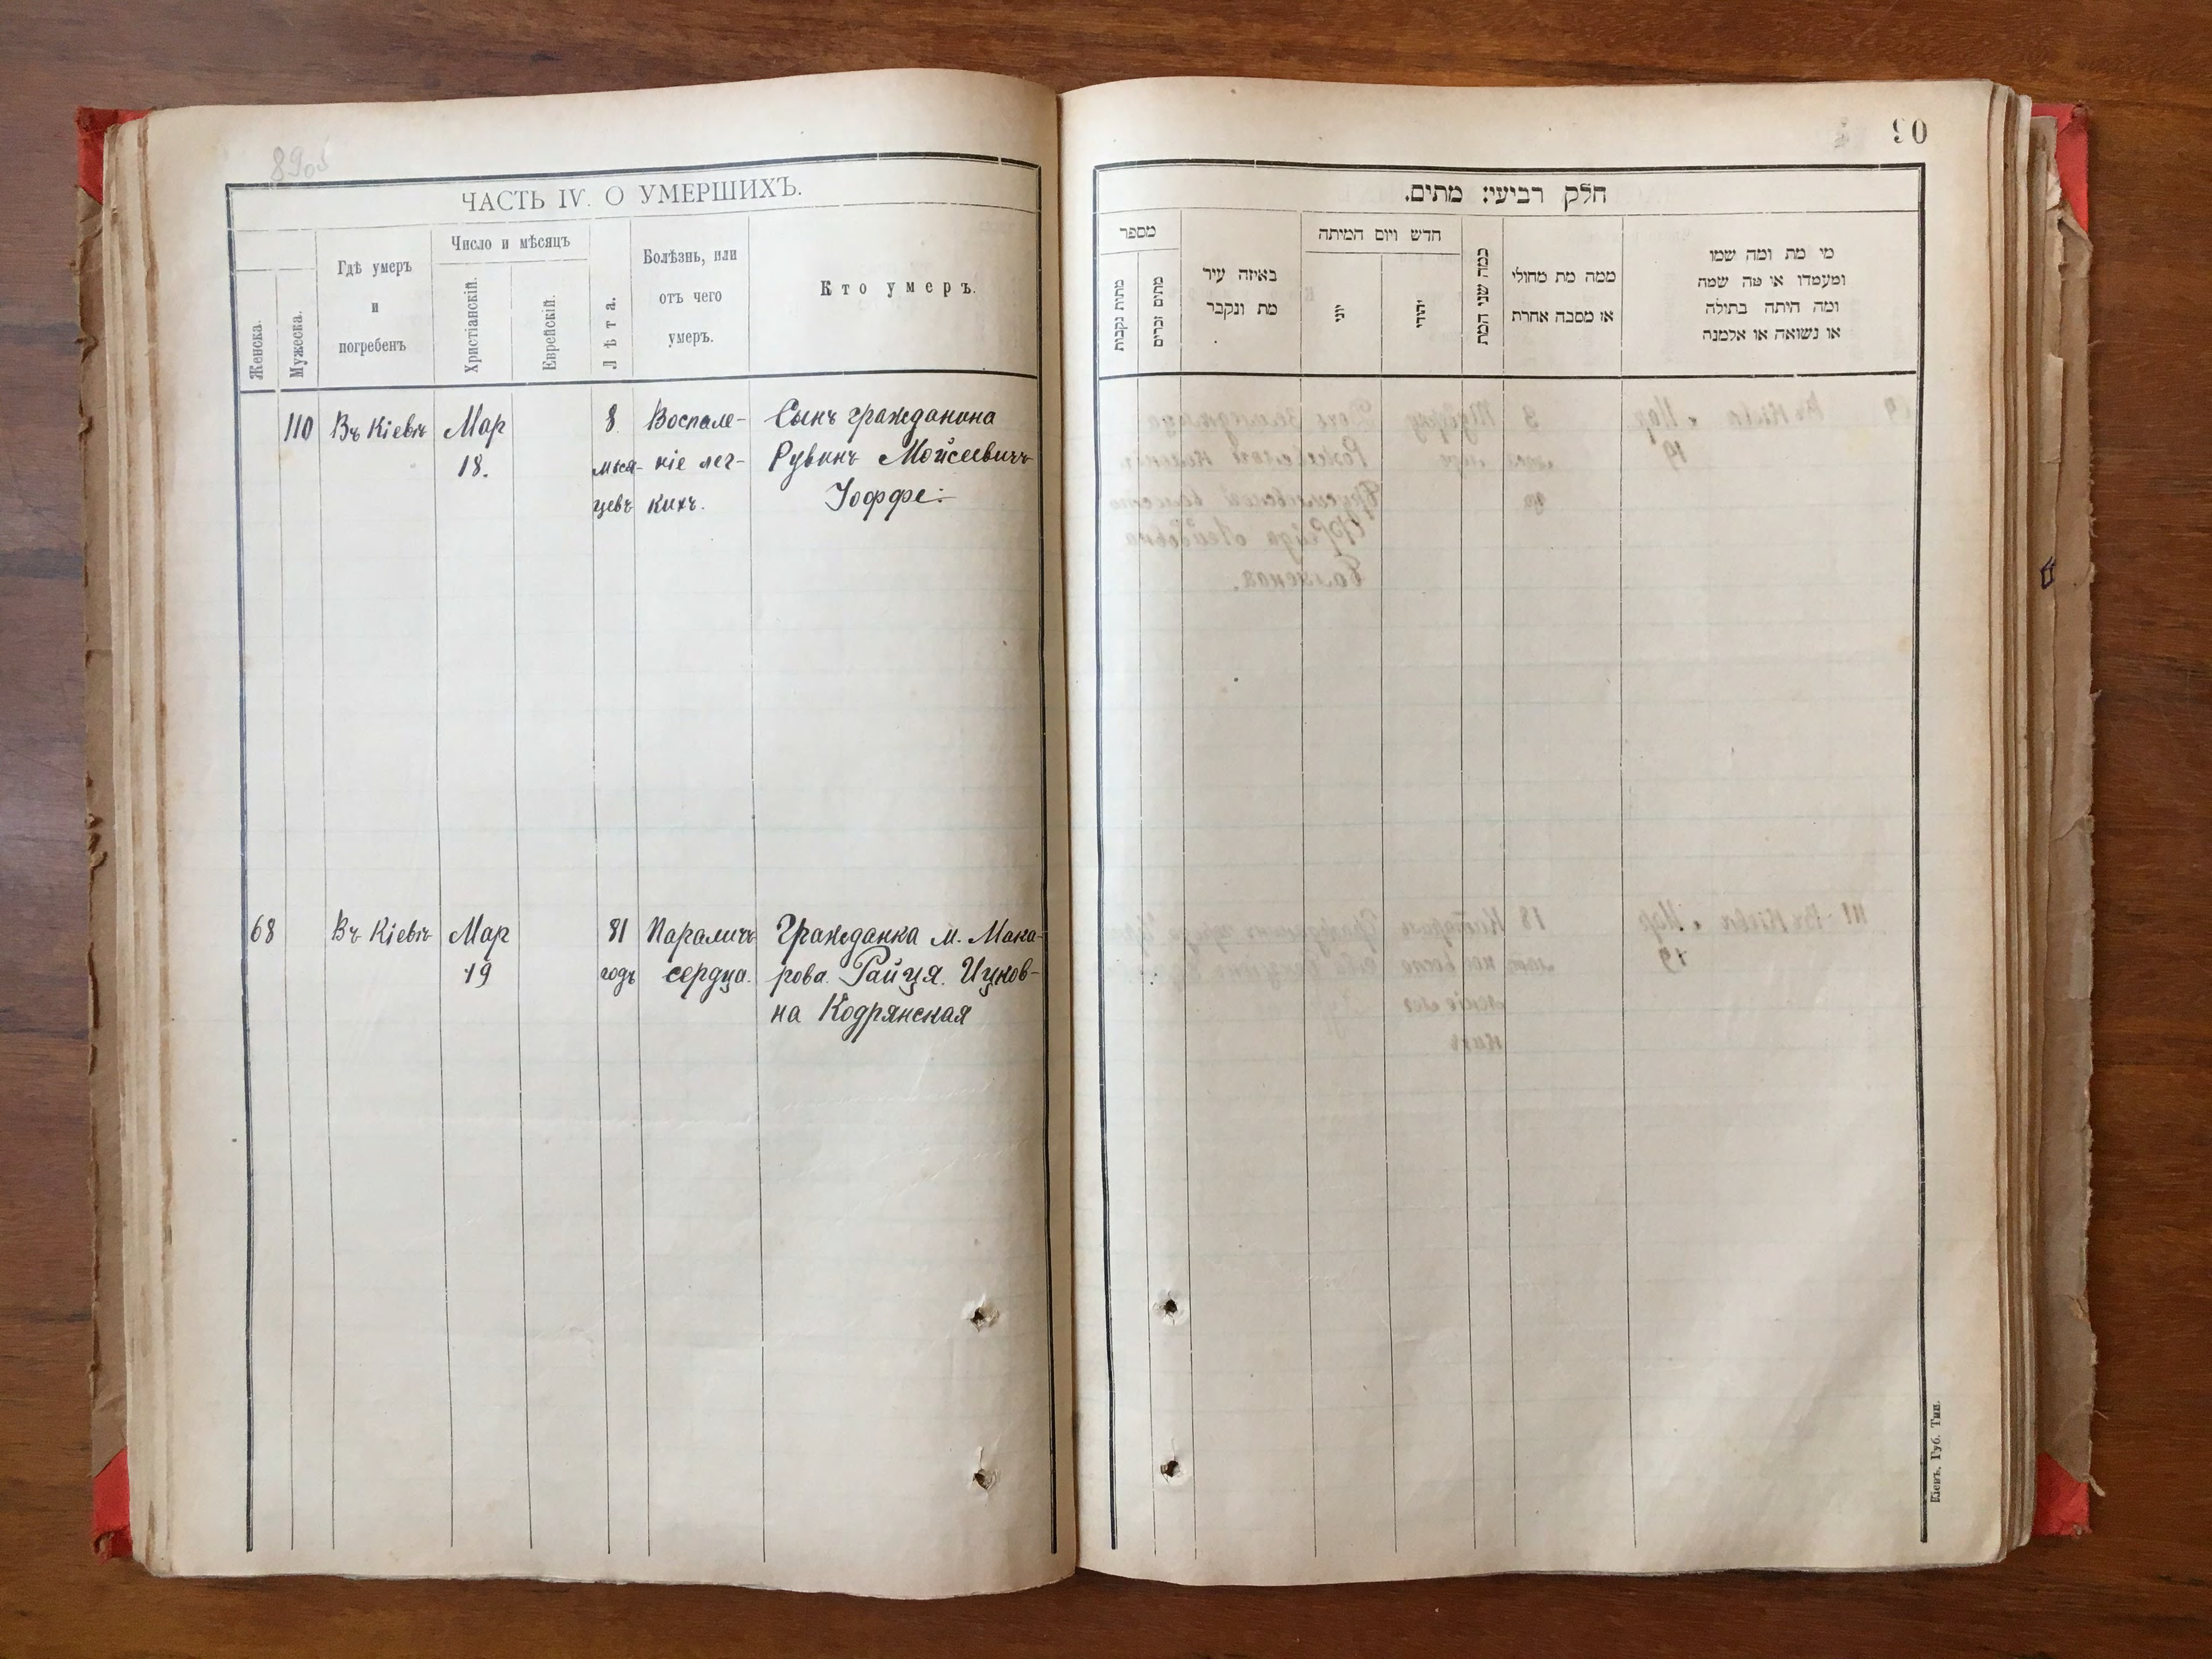 ЧАСТЬ IV. О УМЕРШИХЪ.
Женска.
Мужеска.
Гдѣ умеръ
и
погребенъ
Число и мѣсяцъ
Христіанскій.
Еврейскій.
Лѣта.
Болѣзнь, или
отъ чего
умеръ.
Кто умеръ.
110 Въ Кіевѣ Мар 8 Воспале- Сынъ гражданина
18. мѣся- ніе лег- Рувинъ Мойсеевичъ
цевъ кихъ. Іоффе.
68 Въ Кіевѣ Мар 81 Параличъ Гражданка м. Мака-
19 годъ сердца. рова. Райця. Ицков-
на Кодрянская
חלק רביעי: מתים.
מספר
מתות נקבות
מתים זכרים
באיזה עיר
מת ונקבר
חדש ויום המיתה
יוני
יהודי
כמה שני המת
ממה מת מחולי
או מסבה אחרת
מי מת ומה שמו
ומעמדו או מה שמה
ומה היתה בתולה
או נשואה או אלמנה
Кіевъ. Губ. Тип.